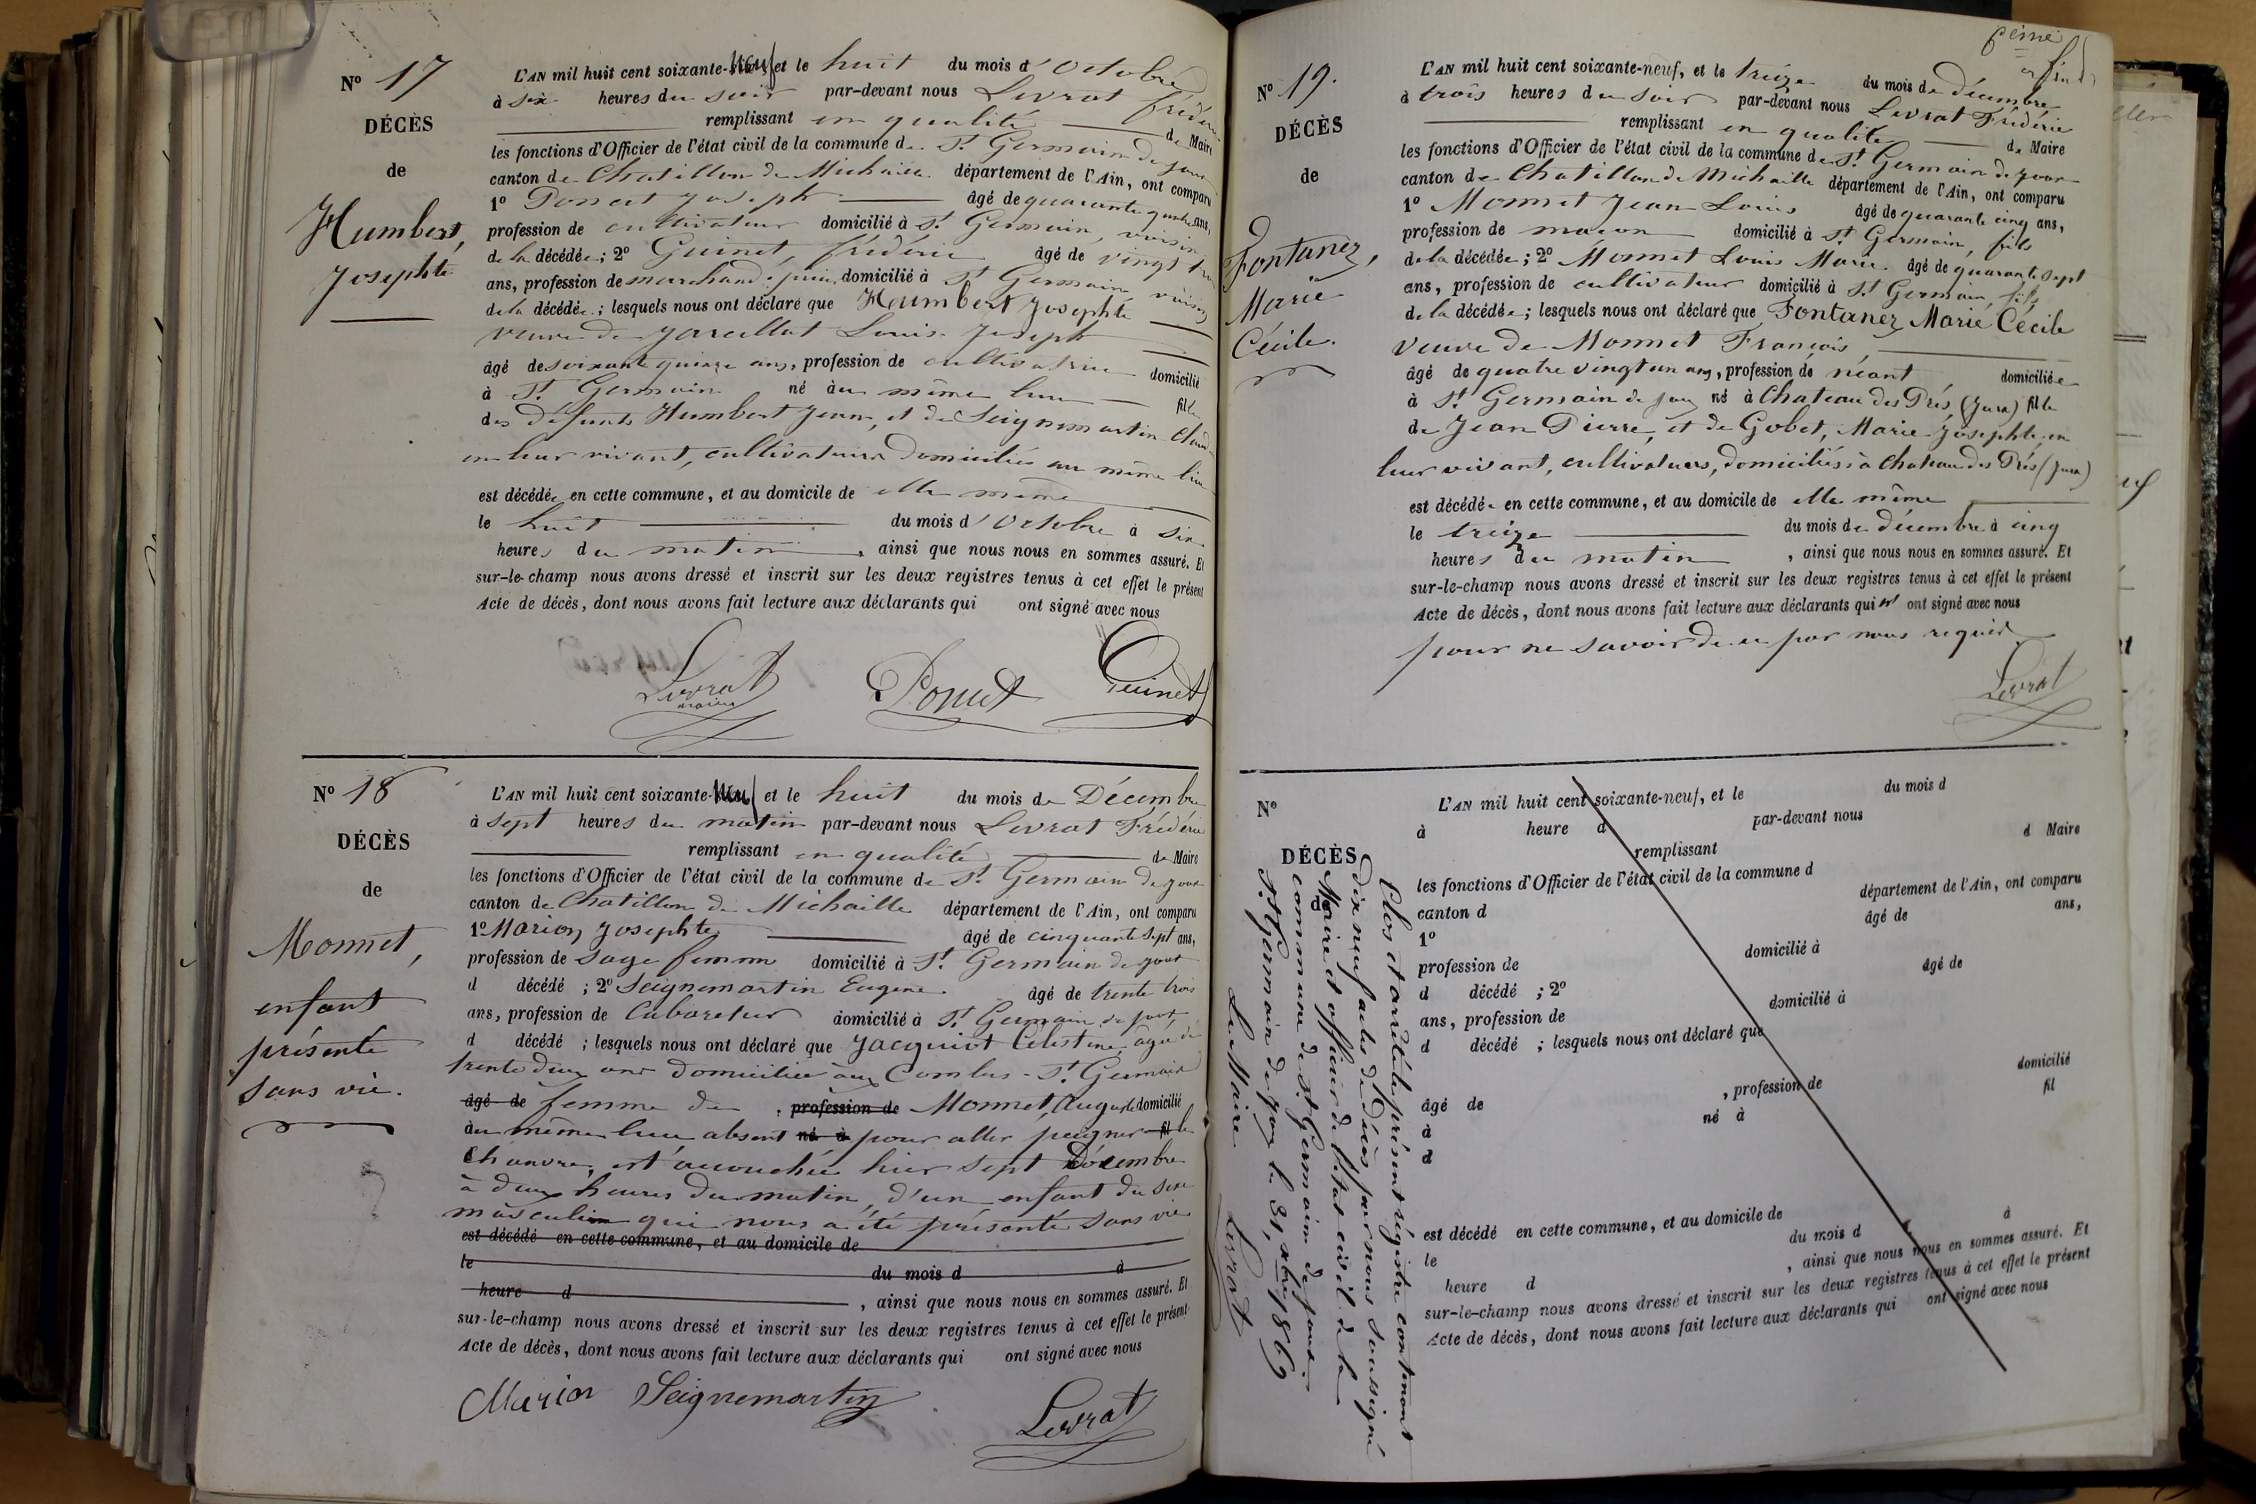 N° 17
DÉCÈS
de
Humbert,
Josephte
L'AN mil huit cent soixante-neuf et le huit du mois d'Octobre
à six heures du soir par-devant nous Levrat Frédéric
remplissant en qualité de Maire
les fonctions d'Officier de l'état civil de la commune de St Germain de Joux
canton de Chatillon de Michaille département de l'Ain, ont comparu
1° Poncet Joseph âgé de quarante quatre ans,
profession de cultivateur domicilié à St Germain, voisin
de la décédée; 2° Guinet, Frédéric âgé de vingt
ans, profession de marchand domicilié à St Germain voisin
de la décédée; lesquels nous ont déclaré que Humbert Josephte
veuve de Louis Joseph
âgé de soixante quinze ans, profession de cultivatrice domicilié
à St Germain né au même lieu fille
des défunts Humbert Jean, et de Seignemartin
en leur vivant, cultivateurs domiciliés au même lieu
est décédée en cette commune, et au domicile de elle même
le huit du mois d'Octobre à six
heures du matin, ainsi que nous nous en sommes assuré. Et
sur-le-champ nous avons dressé et inscrit sur les deux registres tenus à cet effet le présent
Acte de décès, dont nous avons fait lecture aux déclarants qui ont signé avec nous
Levrat
maire
Poncet
Guinet
N° 18
DÉCÈS
de
Monnet,
enfant
présenté
sans vie.
L'AN mil huit cent soixante-neuf et le huit du mois de Décembre
à sept heures du matin par-devant nous Levrat Frédéric
remplissant en qualité de Maire
les fonctions d'Officier de l'état civil de la commune de St Germain de Joux
canton de Chatillon de Michaille département de l'Ain, ont comparu
1° Marion Josephte âgé de cinquante sept ans,
profession de sage femme domicilié à St Germain de Joux
d décédé ; 2° Seignemartin Eugene âgé de trente trois
ans, profession de Cabaretier domicilié à St Germain de Joux
d décédé ; lesquels nous ont déclaré que Jacquiot Célestine, âgée de
trente deux ans domiciliée aux Combes - St Germain
âgé de femme de , profession de Monnet, Auguste domicilié
au même lieu absent né à pour aller peigner fil le
Chanvre, est accouchée hier sept Décembre
à deux heures du matin, d'un enfant du sexe
masculin qui nous a été présenté sans vie
est décédé en cette commune, et au domicile de
le du mois d à
heure d , ainsi que nous nous en sommes assuré. Et
sur-le-champ nous avons dressé et inscrit sur les deux registres tenus à cet effet le présent
Acte de décès, dont nous avons fait lecture aux déclarants qui ont signé avec nous
Marion Seignemartin
Levrat
N° 19.
DÉCÈS
de
Fontanez,
Marie
Cécile.
L'AN mil huit cent soixante-neuf, et le treize du mois de décembre
à trois heures du soir par-devant nous Levrat Frédéric
remplissant en qualité de Maire
les fonctions d'Officier de l'état civil de la commune de St Germain de Joux
canton de Chatillon de Michaille département de l'Ain, ont comparu
1° Monnet Jean Louis âgé de quarante cinq ans,
profession de maçon domicilié à St Germain, fils
de la décédée; 2° Monnet Louis Marie âgé de quarante sept
ans, profession de cultivateur domicilié à St Germain, fils
de la décédée; lesquels nous ont déclaré que Fontanez Marie Cécile
veuve de Monnet François,
âgé de quatre vingt un ans, profession de néant domiciliée
à St Germain de Joux né à Chateau des Prés, (Jura) fille
de Jean Pierre, et de Gobet, Marie Josephte, en
leur vivant, cultivateurs, domiciliés à Chateau des Prés (Jura)
est décédée en cette commune, et au domicile de elle même
le treize du mois de décembre à cinq
heures du matin , ainsi que nous nous en sommes assuré. Et
sur-le-champ nous avons dressé et inscrit sur les deux registres tenus à cet effet le présent
Acte de décès, dont nous avons fait lecture aux déclarants qui n' ont signé avec nous
pour ne savoir de ce par nous requis
Levrat
N°
DÉCÈS
de
L'AN mil huit cent soixante-neuf, et le du mois d
à heure d par-devant nous
remplissant d Maire
les fonctions d'Officier de l'état civil de la commune d
canton d département de l'Ain, ont comparu
1° âgé de ans,
profession de domicilié à
d décédé ; 2° âgé de
ans, profession de domicilié à
d décédé ; lesquels nous ont déclaré que
âgé de , profession de domicilié
à né à fil
d
est décédé en cette commune, et au domicile de
le du mois d à
heure d , ainsi que nous nous en sommes assuré. Et
sur-le-champ nous avons dressé et inscrit sur les deux registres tenus à cet effet le présent
Acte de décès, dont nous avons fait lecture aux déclarants qui ont signé avec nous
Clos et arrêté le présent régistre contenant
dix neuf actes de Décès par nous soussigné
Maire et officier de l'état civil de la
commune de St Germain de Joux.
St Germain de Joux le 31, xbre 1869
Le Maire
Levrat